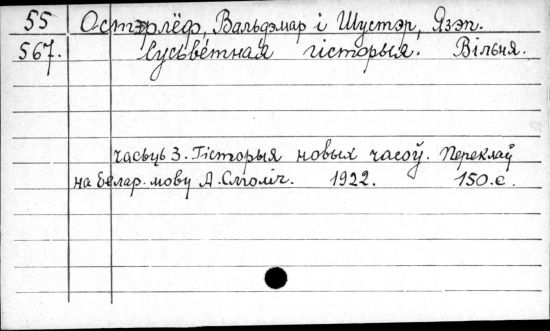 55 Остэрлёф, Вальдэмар і Шустэр, Язэп.
567. Сусьветная гісторыя. Вільня.
часьць 3. Гісторыя новых часоў. Пераклаў
на белар. мову А. Смоліч. 1922. 150.с.